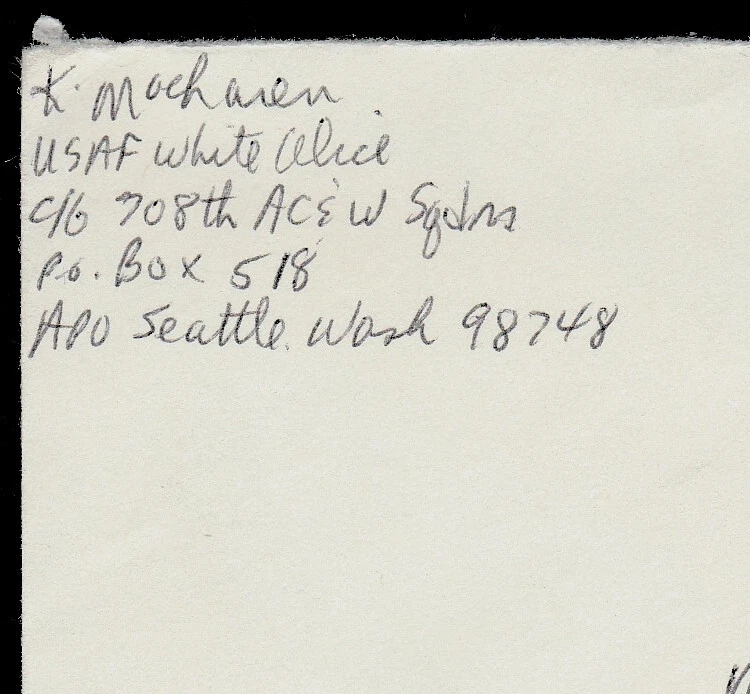 K. MacLaren
USAF White Alice
c/o 708th AC & W Sqdrn
P.O. Box 518
APO Seattle Wash 98748